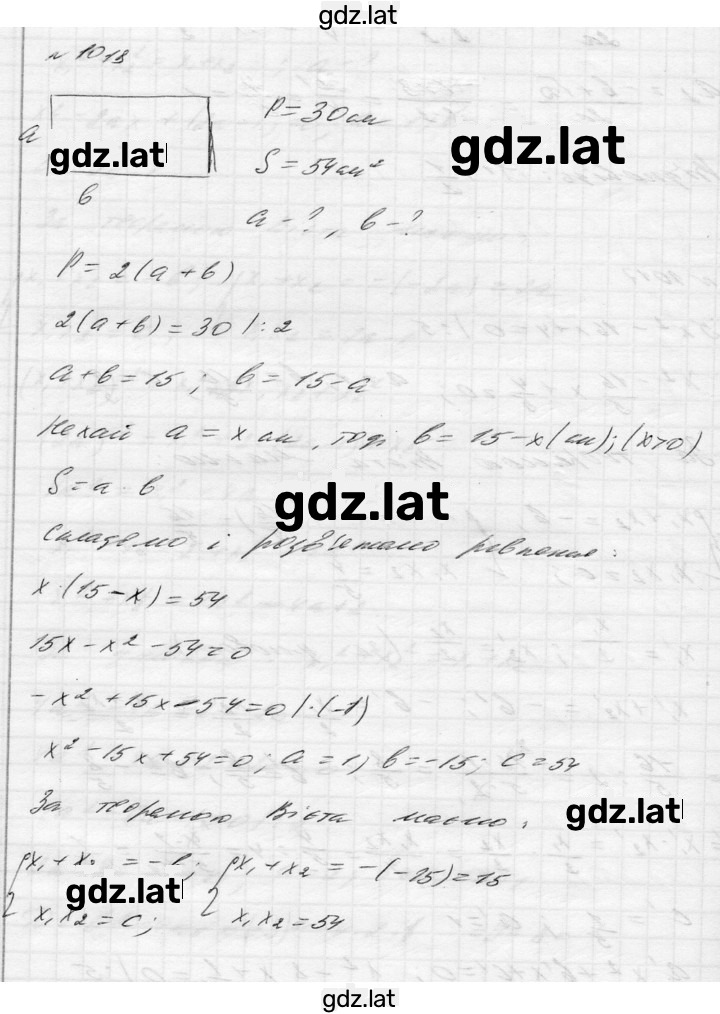 gdz.lat
№ 1018
P = 30 см
a
gdz.lat
gdz.lat
S = 54 см²
в
a - ? , в - ?
P = 2(a + в)
2(a + в) = 30 | : 2
a + в = 15 ; в = 15 - a
Нехай a = x см , тоді в = 15 - x (см) ; (x > 0)
S = a · в
gdz.lat
Складемо і розв'яжемо рівняння :
x · (15 - x) = 54
15x - x² - 54 = 0
- x² + 15x - 54 = 0 | · (-1)
x² - 15x + 54 = 0 ; a = 1 ; в = -15 ; c = 54
За теоремою Вієта маємо :
gdz.lat
{ x₁ + x₂ = - в ; { x₁ + x₂ = - (-15) = 15
gdz.lat
x₁ x₂ = c ; x₁ x₂ = 54
gdz.lat